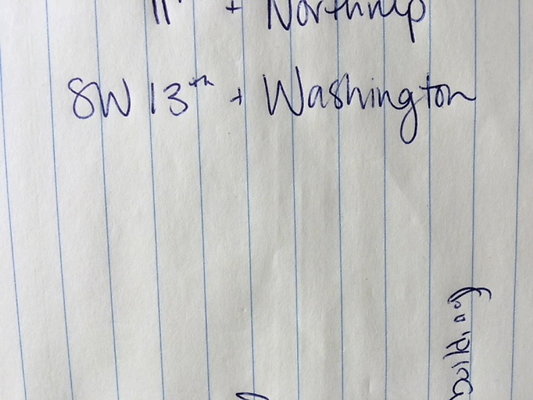 11th + Northrup
SW 13th + Washington
building)